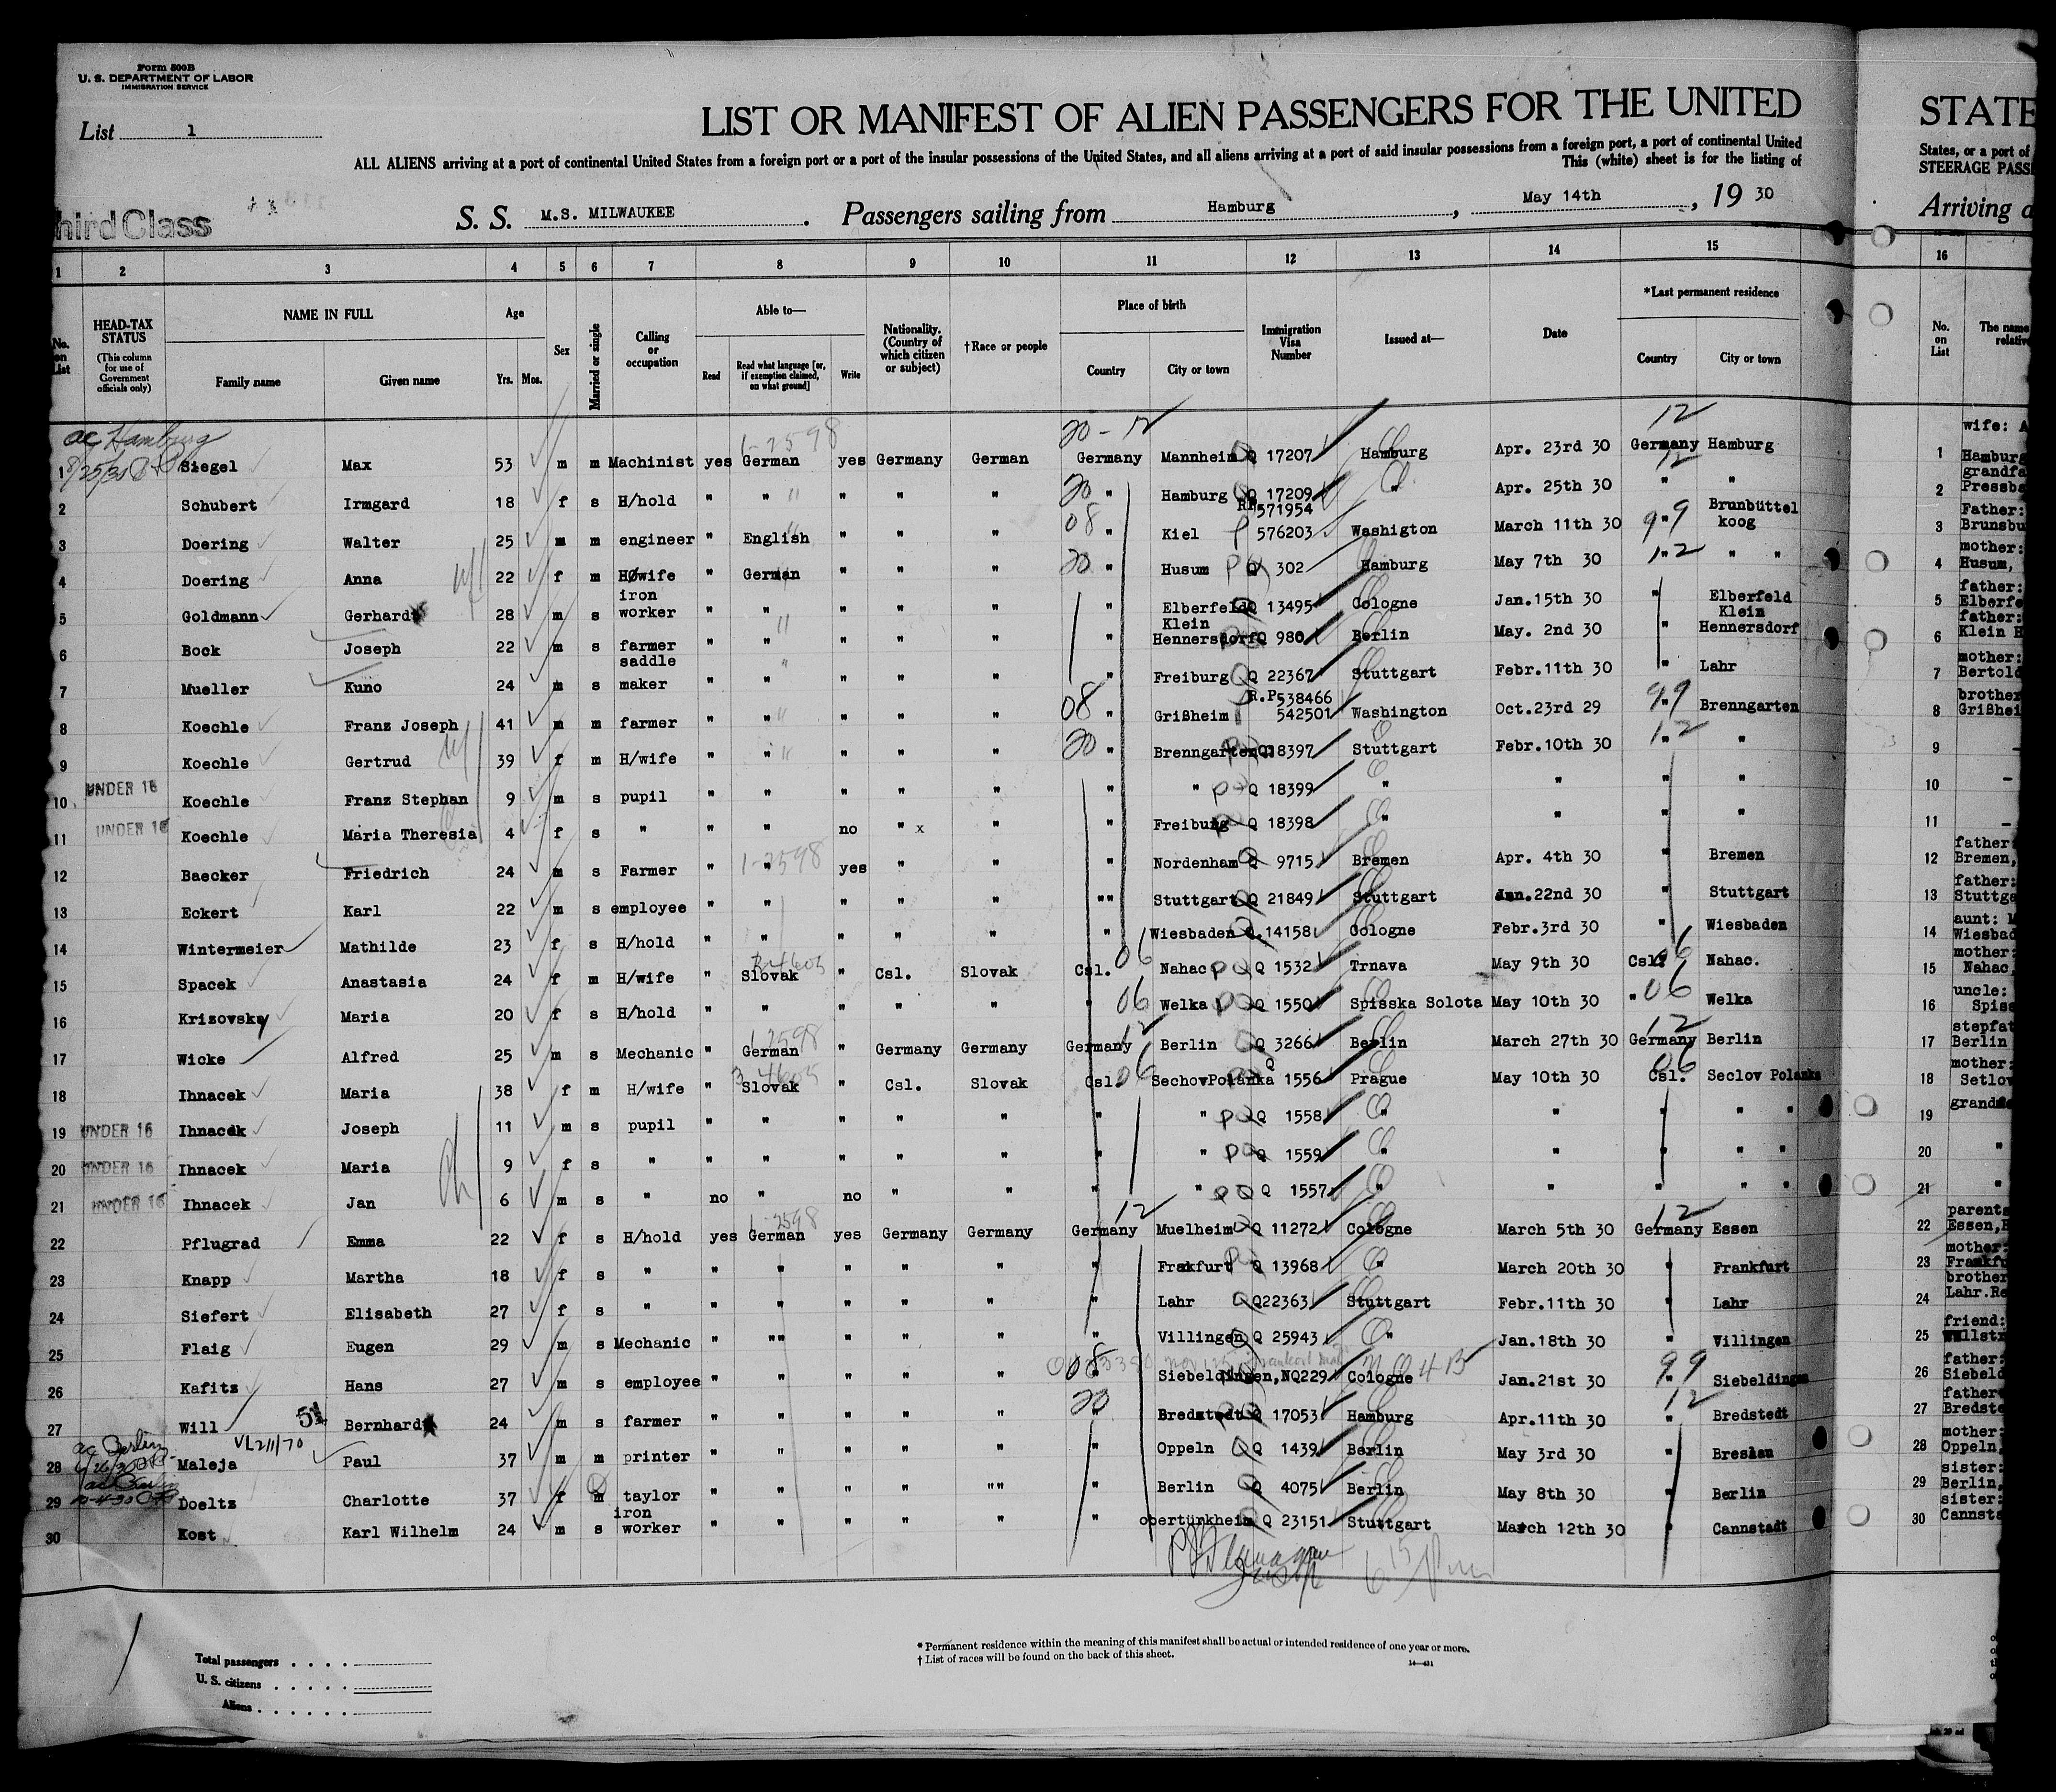 Form 500B
U. S. DEPARTMENT OF LABOR
IMMIGRATION SERVICE
List 1
LIST OR MANIFEST OF ALIEN PASSENGERS FOR THE UNITED
STATE
ALL ALIENS arriving at a port of continental United States from a foreign port or a port of the insular possessions of the United States, and all aliens arriving at a port of said insular possessions from a foreign port, a port of continental United
States, or a port of
This (white) sheet is for the listing of
STEERAGE PASS
hird Class
S. S. M.S. MILWAUKEE. Passengers sailing from Hamburg, May 14th, 19 30
Arriving a
1 2 3 4 5 6 7 8 9 10 11 12 13 14 15 16
No. on List
HEAD-TAX STATUS
(This column for use of Government officials only)
NAME IN FULL
Family name
Given name
Age
Yrs. Mos.
Sex
Married or single
Calling or occupation
Able to—
Read
Read what language [or, if exemption claimed, on what ground]
Write
Nationality. (Country of which citizen or subject)
†Race or people
Place of birth
Country
City or town
Immigration Visa Number
Issued at—
Date
*Last permanent residence
Country
City or town
No. on List
The name
relative
ac Hamburg
1 Siegel Max 53 m m Machinist yes German yes Germany German Germany Mannheim Q 17207 Hamburg Apr. 23rd 30 Germany Hamburg
2 Schubert Irmgard 18 f s H/hold " " " " " " Hamburg Q 17209 " Apr. 25th 30 " "
3 Doering Walter 25 m m engineer " English " " " " Kiel RP.571954 576203 Washigton March 11th 30 " Brunbüttel koog
4 Doering Anna 22 f m H/wife " German " " " " Husum Q 302 Hamburg May 7th 30 " " "
5 Goldmann Gerhard 28 m s iron worker " " " " " " Elberfeld Q 13495 Cologne Jan.15th 30 " Elberfeld
6 Bock Joseph 22 m s farmer " " " " " " Klein Hennersdorf Q 980 Berlin May. 2nd 30 " Klein Hennersdorf
7 Mueller Kuno 24 m s saddle maker " " " " " " Freiburg Q 22367 Stuttgart Febr.11th 30 " Lahr
8 Koechle Franz Joseph 41 m m farmer " " " " " " Grißheim R.P538466 542501 Washington Oct.23rd 29 " Brenngarten
9 Koechle Gertrud 39 f m H/wife " " " " " " Brenngarten Q18397 Stuttgart Febr.10th 30 " "
10 UNDER 16 Koechle Franz Stephan 9 m s pupil " " " " " " " Q 18399 " " " "
11 UNDER 16 Koechle Maria Theresia 4 f s " " " no " x " " Freiburg Q 18398 " " " "
12 Baecker Friedrich 24 m s Farmer " " yes " " " Nordenham Q 9715 Bremen Apr. 4th 30 " Bremen
13 Eckert Karl 22 m s employee " " " " " "" Stuttgart Q 21849 Stuttgart Jan.22nd 30 " Stuttgart
14 Wintermeier Mathilde 23 f s H/hold " " " " " " Wiesbaden Q.14158 Cologne Febr.3rd 30 " Wiesbaden
15 Spacek Anastasia 24 f m H/wife " Slovak " Csl. Slovak Csl. Nahac Q 1532 Trnava May 9th 30 Csl. Nahac.
16 Krizovsky Maria 20 f s H/hold " " " " " " Welka Q 1550 Spisska Solota May 10th 30 " Welka
17 Wicke Alfred 25 m s Mechanic " German " Germany Germany Germany Berlin Q 3266 Berlin March 27th 30 Germany Berlin
18 Ihnacek Maria 38 f m H/wife " Slovak " Csl. Slovak Csl. SechovPolanka Q 1556 Prague May 10th 30 Csl. Seclov Polanka
19 UNDER 16 Ihnacek Joseph 11 m s pupil " " " " " " " Q 1558 " " " " "
20 UNDER 16 Ihnacek Maria 9 f s " " " " " " " " Q 1559 " " " " "
21 UNDER 16 Ihnacek Jan 6 m s " no " no " " " " Q 1557 " " " " "
22 Pflugrad Emma 22 f s H/hold yes German yes Germany Germany Germany Muelheim Q 11272 Cologne March 5th 30 Germany Essen
23 Knapp Martha 18 f s " " " " " " " Frankfurt Q 13968 " March 20th 30 " Frankfurt
24 Siefert Elisabeth 27 f s " " " " " " " Lahr Q22363 Stuttgart Febr.11th 30 " Lahr
25 Flaig Eugen 29 m s Mechanic " "" " " " " Villingen Q 25943 " Jan.18th 30 " Villingen
26 Kafitz Hans 27 m s employee " " " " " " Siebeldingen,NQ229 Cologne Jan.21st 30 " Siebeldingen
27 Will Bernhard 24 m s farmer " " " " " " Bredstedt Q 17053 Hamburg Apr.11th 30 " Bredstedt
28 Maleja Paul 37 m m printer " " " " " " Oppeln Q 1439 Berlin May 3rd 30 " Breslau
29 Doeltz Charlotte 37 f m taylor " " " " "" " Berlin Q 4075 Berlin May 8th 30 " Berlin
30 Kost Karl Wilhelm 24 m s iron worker " " " " " " obertürkheim Q 23151 Stuttgart March 12th 30 " Cannstadt
wife: A
1 Hamburg
grandfa
2 Pressba
Father:
3 Brunsbu
mother:
4 Husum,
father:
5 Elberfe
father:
6 Klein H
mother:
7 Bertold
brother
8 Grißhei
9 –
10 –
11 –
father:
12 Bremen,
father:
13 Stuttga
aunt: M
14 Wiesbad
mother:
15 Nahac,
uncle:
16 Spiss
stepfat
17 Berlin
mother:
18 Setlov
grandm
19
20 "
21 "
parents
22 Essen,
mother:
23 Frankfu
brother
24 Lahr.Re
friend:
25 Wellstr
father:
26 Siebeld
father
27 Bredste
mother:
28 Oppeln,
sister:
29 Berlin,
sister:
30 Cannsta
Total passengers . . . .
U. S. citizens . . . . .
Aliens . . . . . .
* Permanent residence within the meaning of this manifest shall be actual or intended residence of one year or more.
† List of races will be found on the back of this sheet.